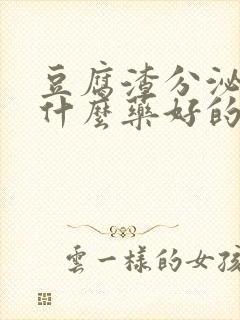 豆腐渣分泌
什麼藥好的
雲一樣的女孩